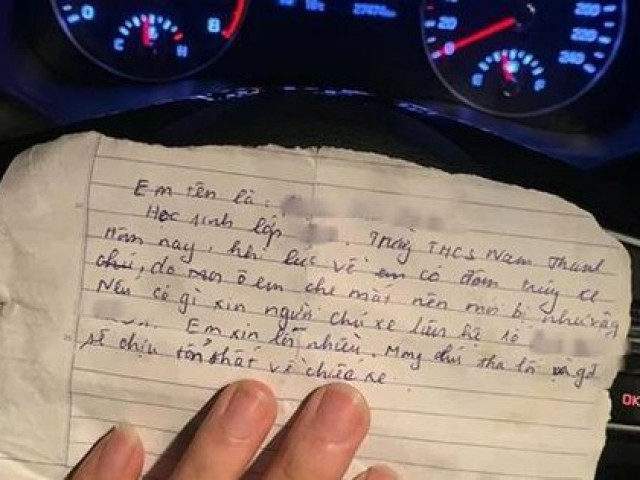 0
8
C
H
20
0
220
240
Em tên là:
Học sinh lớp
. Trường THCS Nam Thanh
Hôm nay, khi lúc về em có đâm trúng xe
chú, do ô em che mắt nên mới bị như vậy
Nếu có gì xin người chủ xe liên hệ số
. Em xin lỗi nhiều. Mong chú tha lỗi và gđ
sẽ chịu tổn thất về chiếc xe.
OK